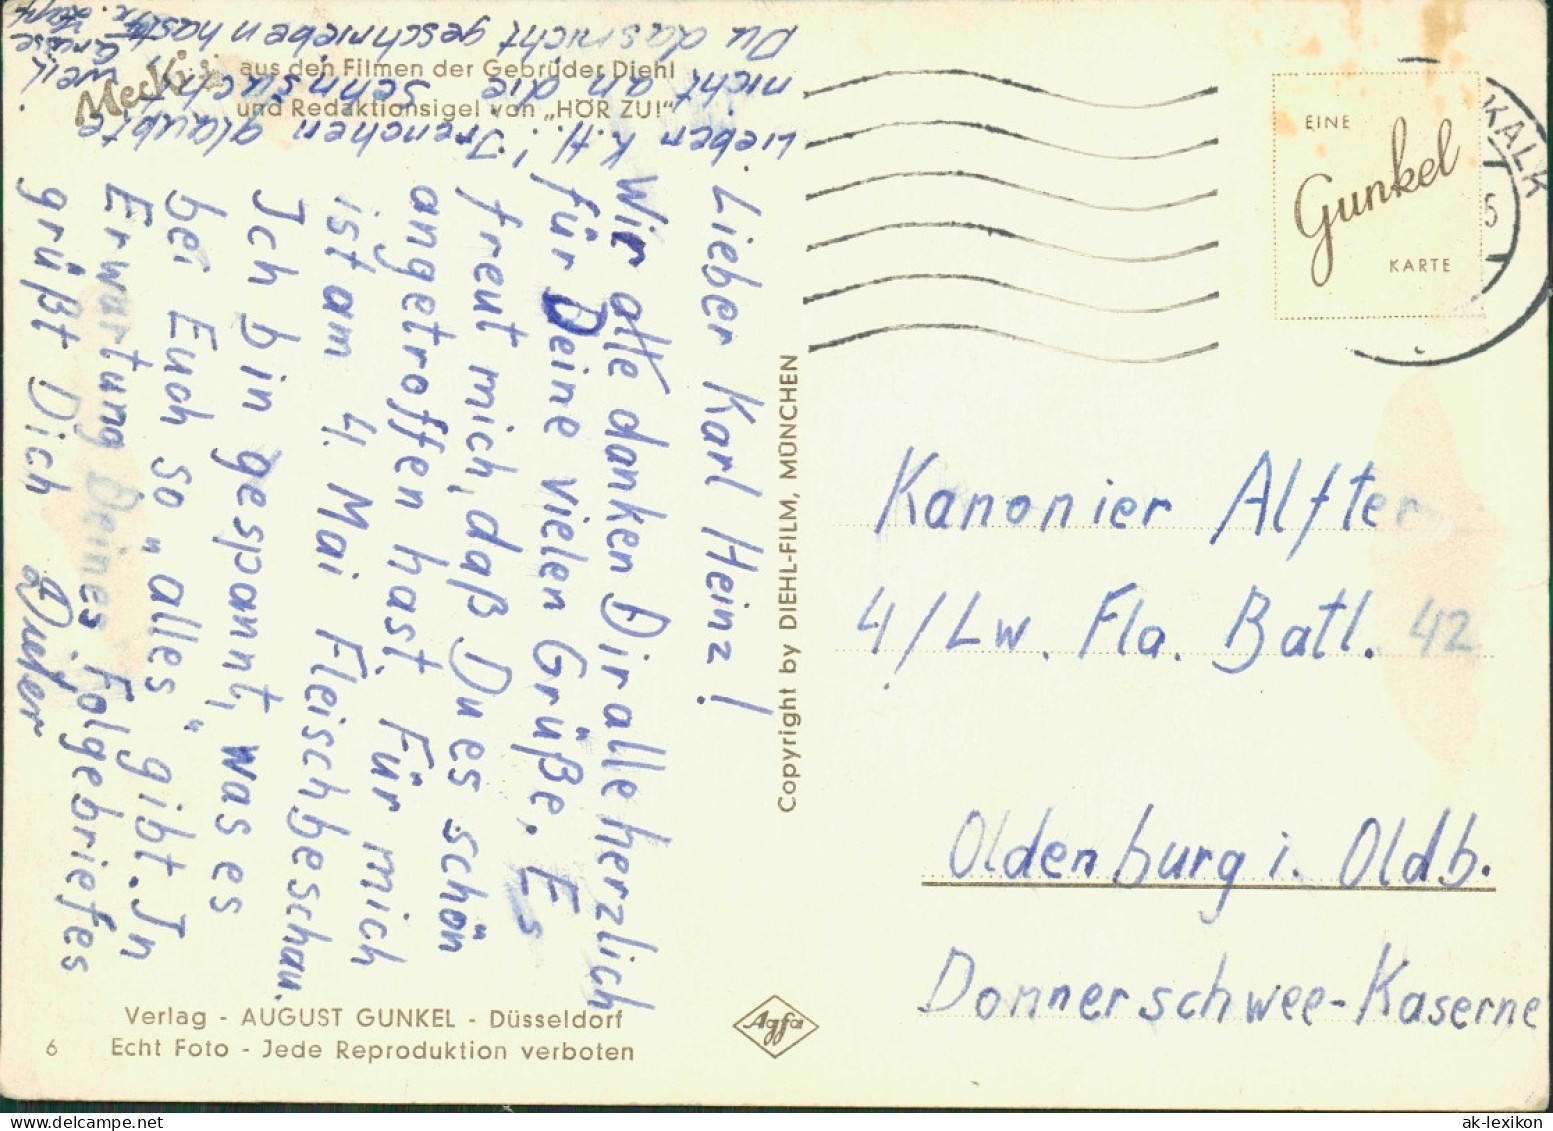 Mecki aus den Filmen der Gebrüder Diehl
und Redaktionsigel von „HÖR ZU!"
Lieber Karl Heinz!
Wir alle danken Dir alle herzlich
für Deine vielen Grüße. Es
freut mich, daß Du es schön
angetroffen hast. Für mich
ist am 4. Mai Fleischbeschau.
Ich bin gespannt, was es
bei Euch so „alles" gibt. In
Erwartung Deines Folgebriefes
grüßt Dich
Lieber K.H.! Irenchen glaubte
nicht an die Sehnsucht, weil
Du das nicht geschrieben hast.
Copyright by DIEHL-FILM, MÜNCHEN
EINE
Gunkel
KARTE
KALK
5
Kanonier Alfter
4/Lw. Fla. Batl. 42
Oldenburg i. Oldb.
Donnerschwee-Kaserne
Verlag - AUGUST GUNKEL - Düsseldorf
6 Echt Foto - Jede Reproduktion verboten
Agfa
ak-lexikon